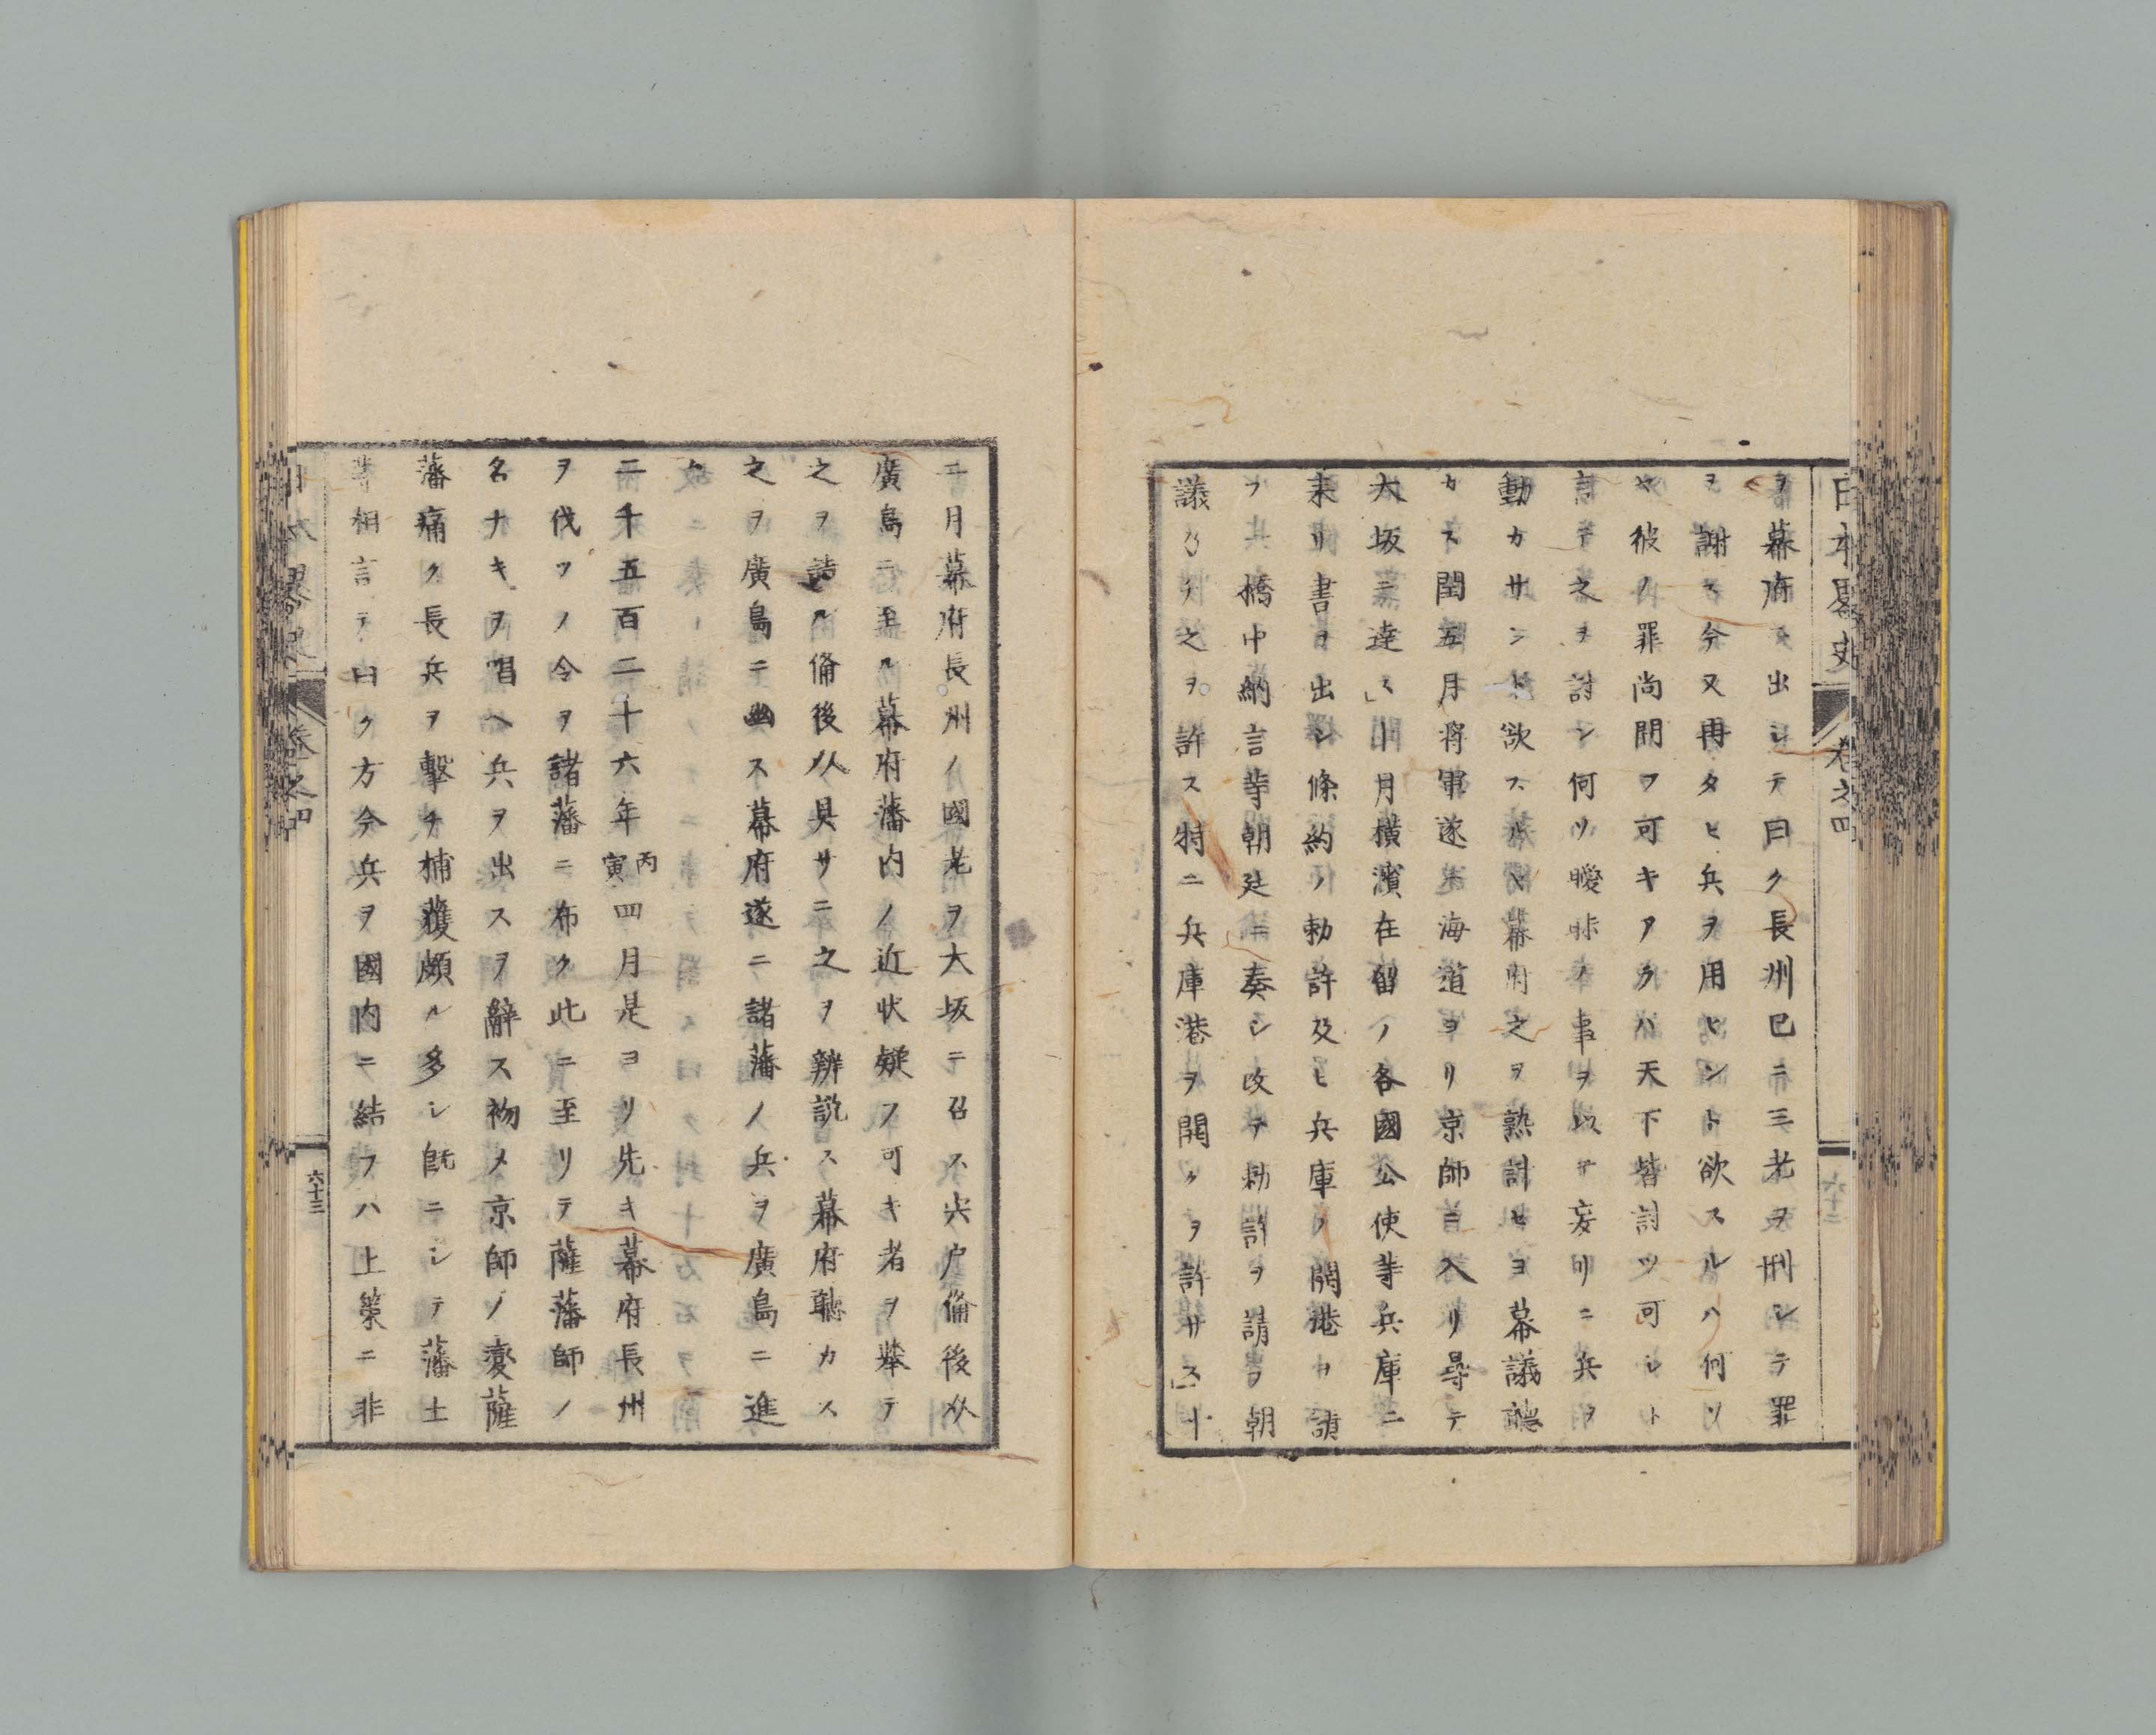 日本畧史 卷之四
ヲ幕府ニ出シテ曰ク長州已ニ三老ヲ刑シテ罪
ヲ謝ス今又再タヒ兵ヲ用ヒント欲スルハ何ソ
ヤ彼ノ罪尚問フ可キアラハ天下皆討ツ可シト
言テ之ヲ討シ何リ曖昧ノ事ヲ以テ妄リニ兵ヲ
動カサント欲スルヤ幕府之ヲ熟計セヨ幕議聽
カス閏五月将軍遂ニ海道ヨリ京師ニ入リ尋テ
大坂ニ達ス」十月横濱在留ノ各國公使等兵庫ニ
来リ書ヲ出シ條約ノ勅許及ヒ兵庫ノ開港ヲ請
フ一橋中納言等朝廷ニ奏シ改テ勅許ヲ請フ朝
議乃チ之ヲ許ス特ニ兵庫港ヲ開クヲ許サス」十
一月幕府長州ノ國老ヲ大坂ニ召ス宍戸備後介
廣島ニ至ル幕府藩内ノ近状疑フ可キ者ヲ擧テ
之ヲ詰ル備後介具サニ之ヲ辨説ス幕府聽カス
之ヲ廣島ニ幽ス幕府遂ニ諸藩ノ兵ヲ廣島ニ進
ム
二千五百二十六年丙寅四月是ヨリ先キ幕府長州
ヲ伐ツノ令ヲ諸藩ニ布ク此ニ至リテ薩藩師ノ
名ナキヲ唱ヘ兵ヲ出スヲ辭ス初メ京師ノ變薩
藩痛ク長兵ヲ擊チ捕獲頗ル多シ既ニシテ藩士
等相言テ曰ク方今兵ヲ國内ニ結フハ上策ニ非
日本畧史 卷之四
六十三